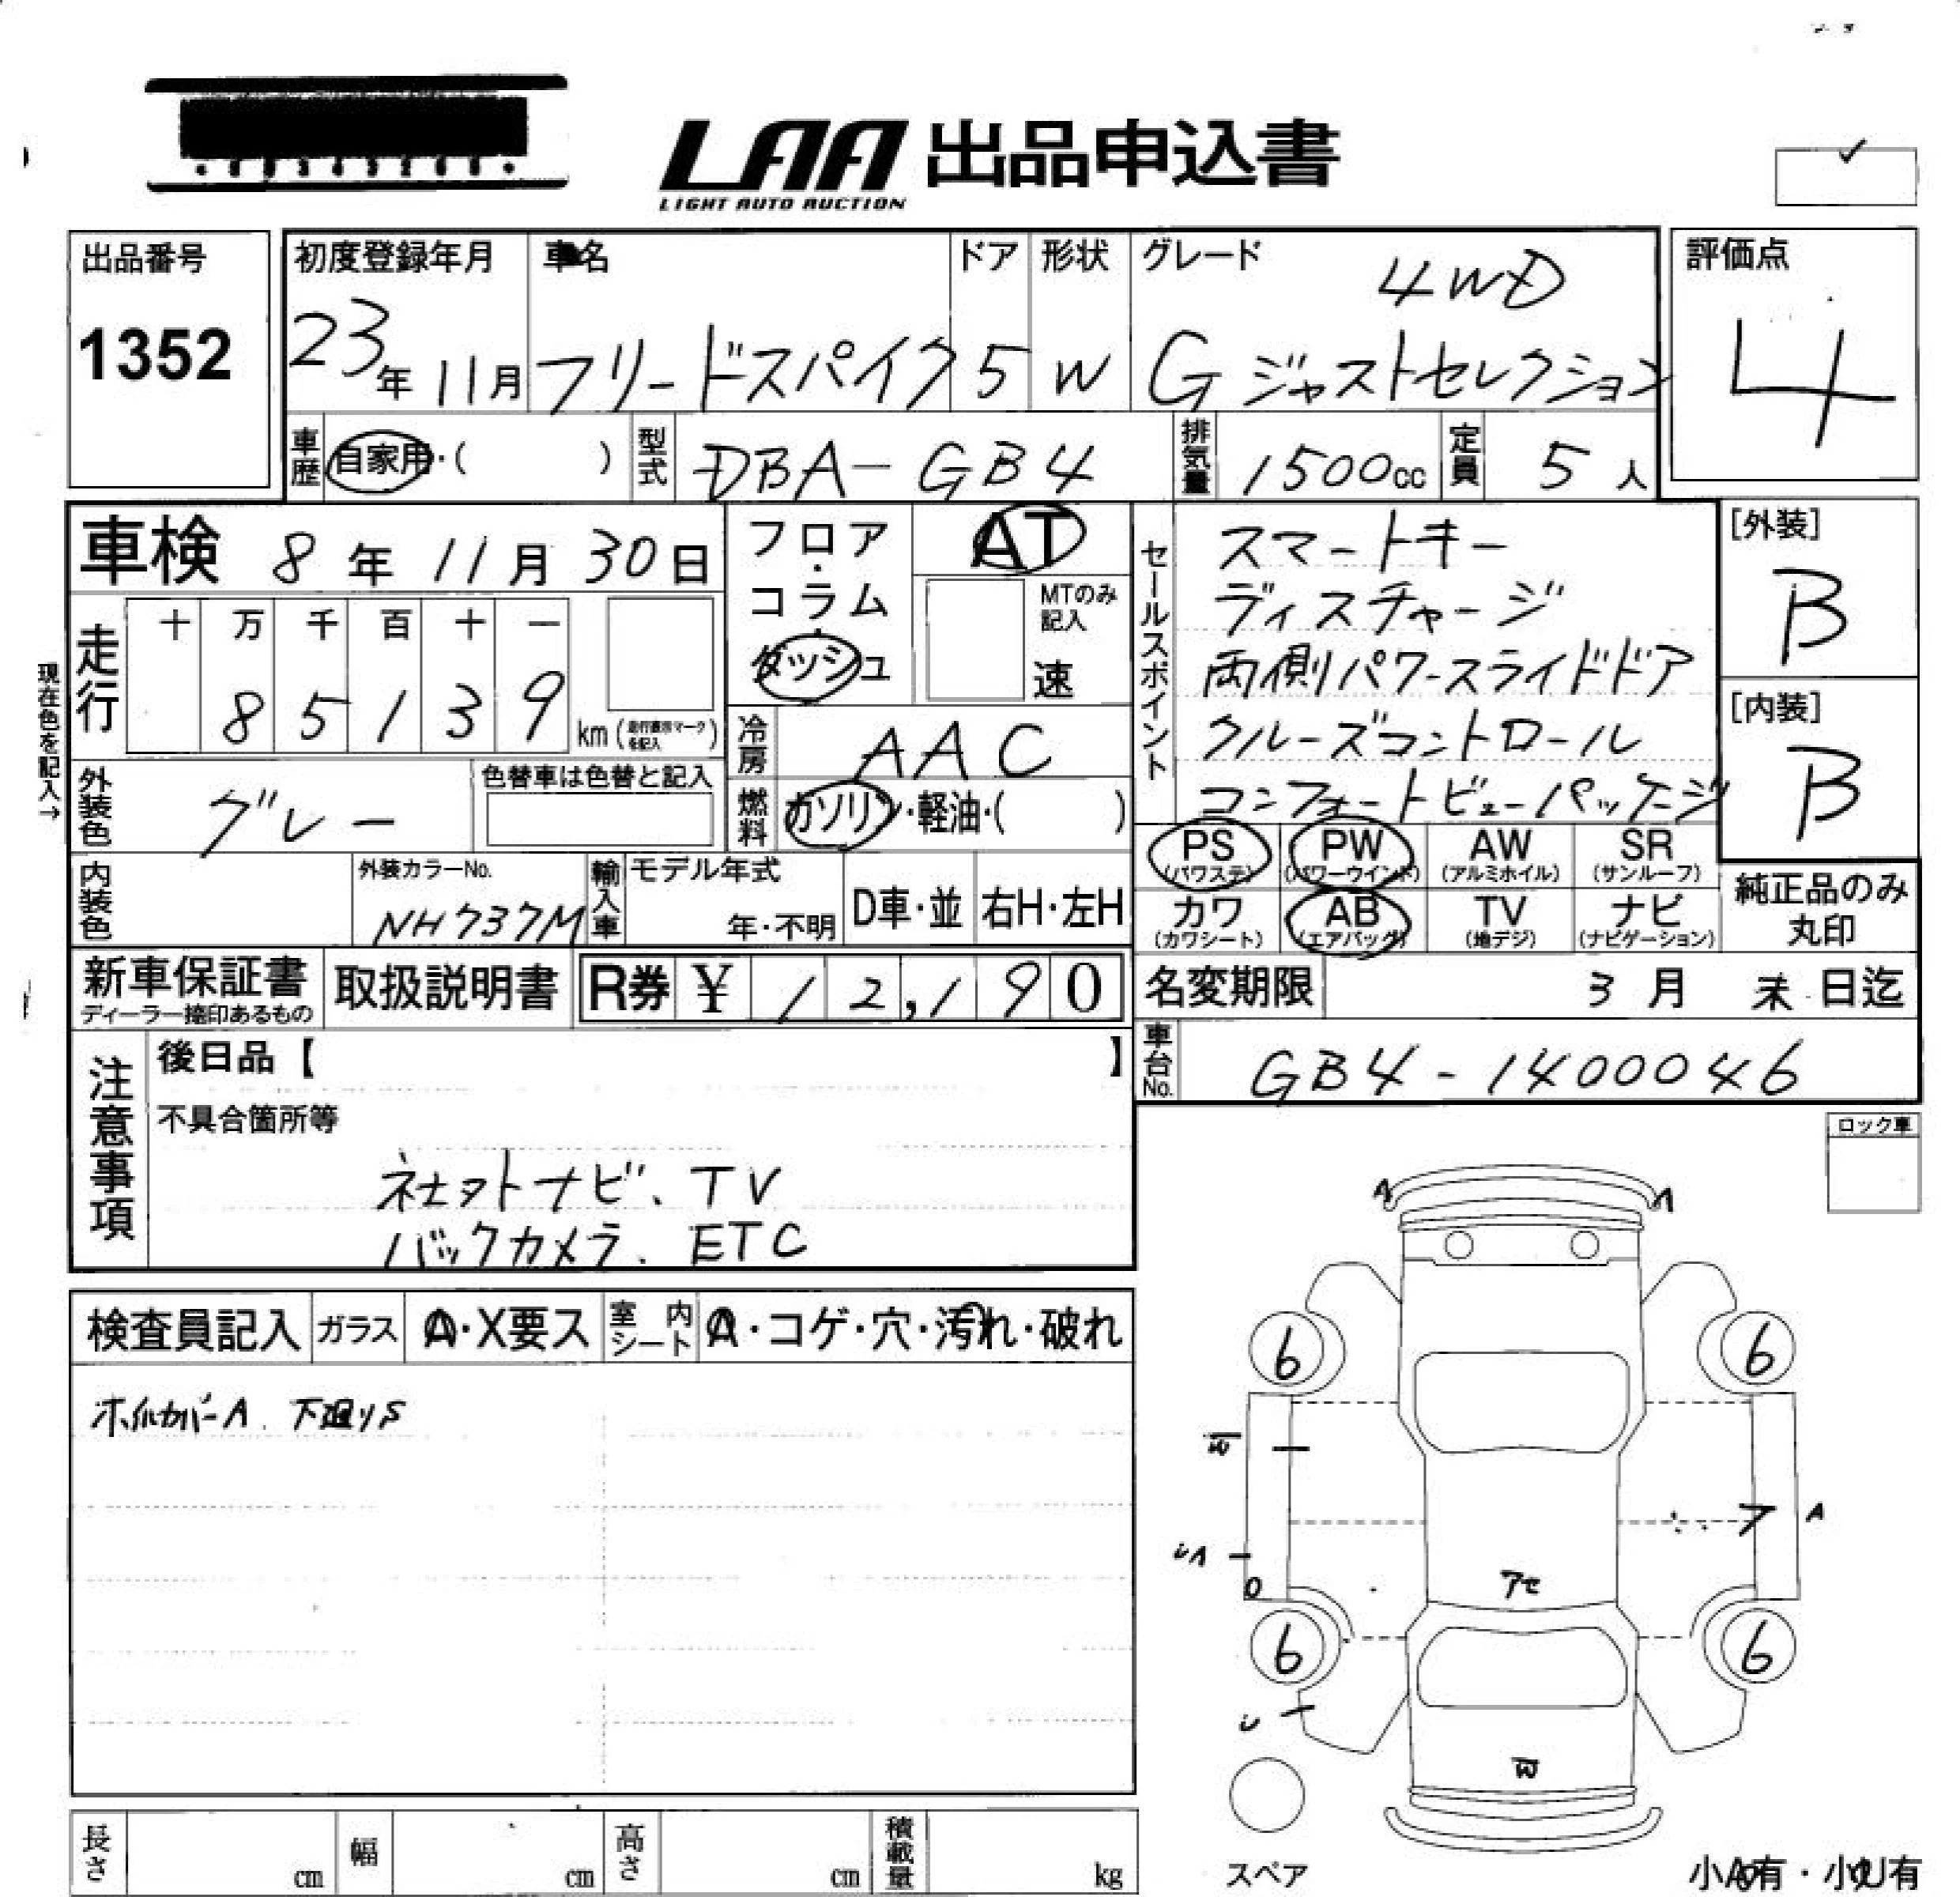 LAA 出品申込書
LIGHT AUTO AUCTION
出品番号
1352
初度登録年月
23年11月
車名
フリードスパイク
ドア
5
形状
W
グレード
4WD
G ジャストセレクション
評価点
4
車歴 自家用・( )
型式 DBA-GB4
排気量 1500cc
定員 5人
車検 8年11月30日
フロア・コラム・ダッシュ
AT
MTのみ記入
速
セールスポイント
スマートキー
ディスチャージ
両側パワースライドドア
クルーズコントロール
コンフォートビューパッケージ
[外装]
B
[内装]
B
現在色を記入→
走行
十 万 千 百 十 一
8 5 1 3 9 km
冷房 AAC
燃料 ガソリン・軽油・( )
外装色 グレー
色替車は色替と記入
内装色
外装カラーNo.
NH737M
輸入車
モデル年式
年・不明
D車・並
右H・左H
PS (パワステ)
PW (パワーウインド)
AW (アルミホイル)
SR (サンルーフ)
カワ (カワシート)
AB (エアバッグ)
TV (地デジ)
ナビ (ナビゲーション)
純正品のみ
丸印
新車保証書
ディーラー捺印あるもの
取扱説明書
R券 ¥12,190
名変期限 3月 末日迄
車台No. GB4-1400046
注意事項
後日品【 】
不具合箇所等
社外ナビ、TV
バックカメラ、ETC
ロック車
検査員記入
ガラス
A・X要ス
室内シート
A・コゲ・穴・汚れ・破れ
ホイルカバーA 下廻りS
A
A
6
6
W
ア
A
アセ
6
6
W
スペア
長さ cm
幅 cm
高さ cm
積載量 kg
小A有・小U有